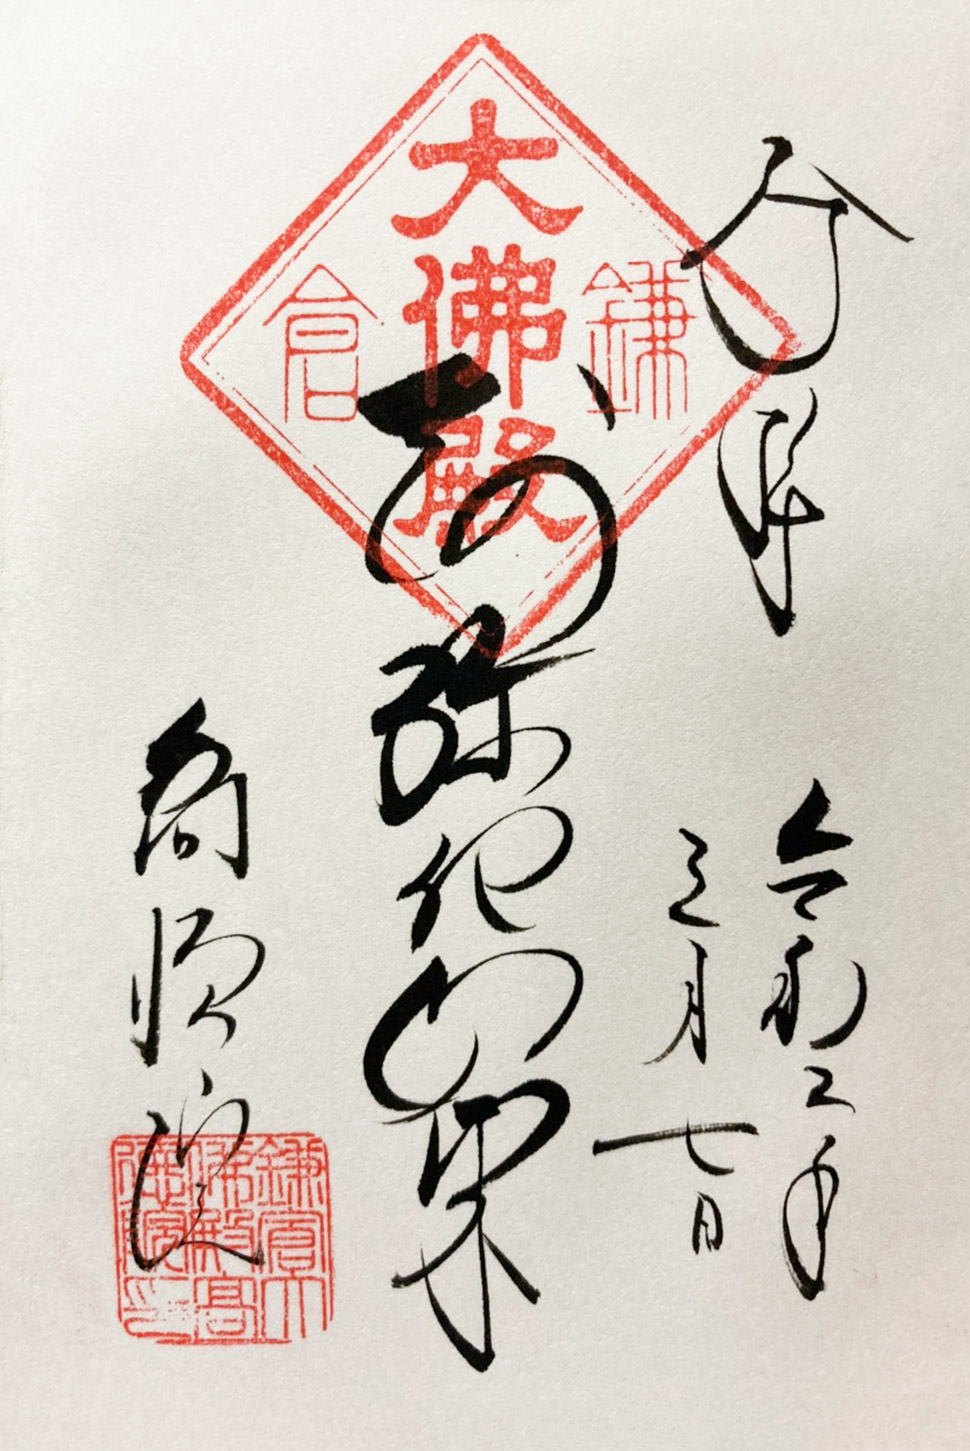 奉拝
令和二年
三月七日
鎌倉
大佛殿
阿弥陀如来
高徳院
鎌倉大
佛殿高
徳院印